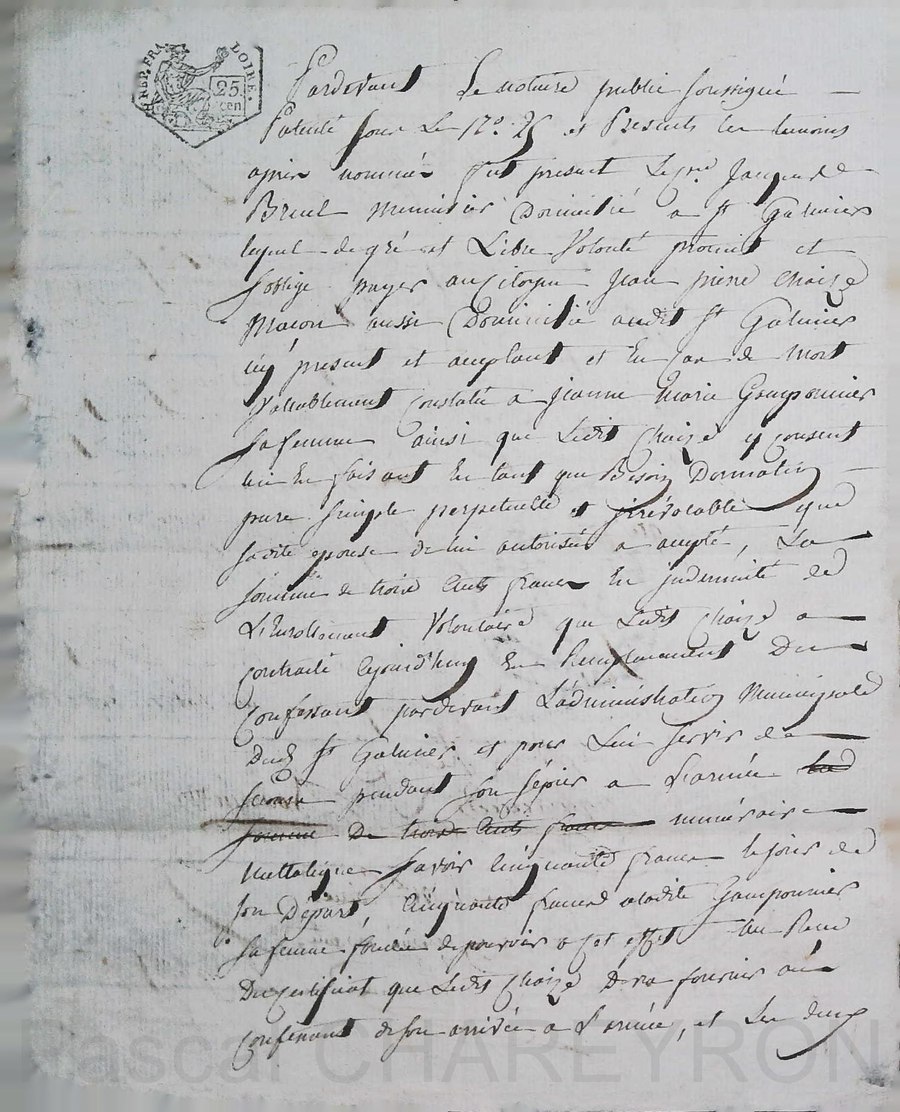 REP. FRA
LOIRE.
25
cen
Pardevant Le notaire public soussigné
Patenté sous Le n.o 25 et Presents les temoins
apres nommés fut présent Le Cyen Jacques
Breul menuisier Domicilié a St Galmier
lequel de gré et Libre Volonté promit et
soblige payer au Citoyen Jean pierre Chaize
Macon aussi Domicilié audit St Galmier
icy present et acceptant et En Cas de mort
Valablement Constatée a Jeanne Marie Gamponnier
sa femme ainsi que Ledit Chaize y consent
lui En faisant En tant que Besoin Donnation
pure simple perpetuelle et jrrévocable que
sadite epouse de lui autorisée a accepté, La
somme de trois Cents francs En jndemnité de
L'Enrollement Volontaire que Ledit Chaize a
Contracté aujourd'huy En Remplacement Du
Confessant pardevant L'administration Municipale
Dudt St Galmier et pour Lui servir de
pendant son séjour a L'armée La
somme De trois Cents francs numéraire
Mettalique Savoir Cinquante francs le jour de
son Départ, Cinquante francs a ladite Gamponnier
sa femme fondée de pouvoir a Cet effet au Reçu
Du Certificat que Ledit Chaize Devra fournir au
Confessant de son arrivée a L'armée, et Les deux
Pascal CHAREYRON